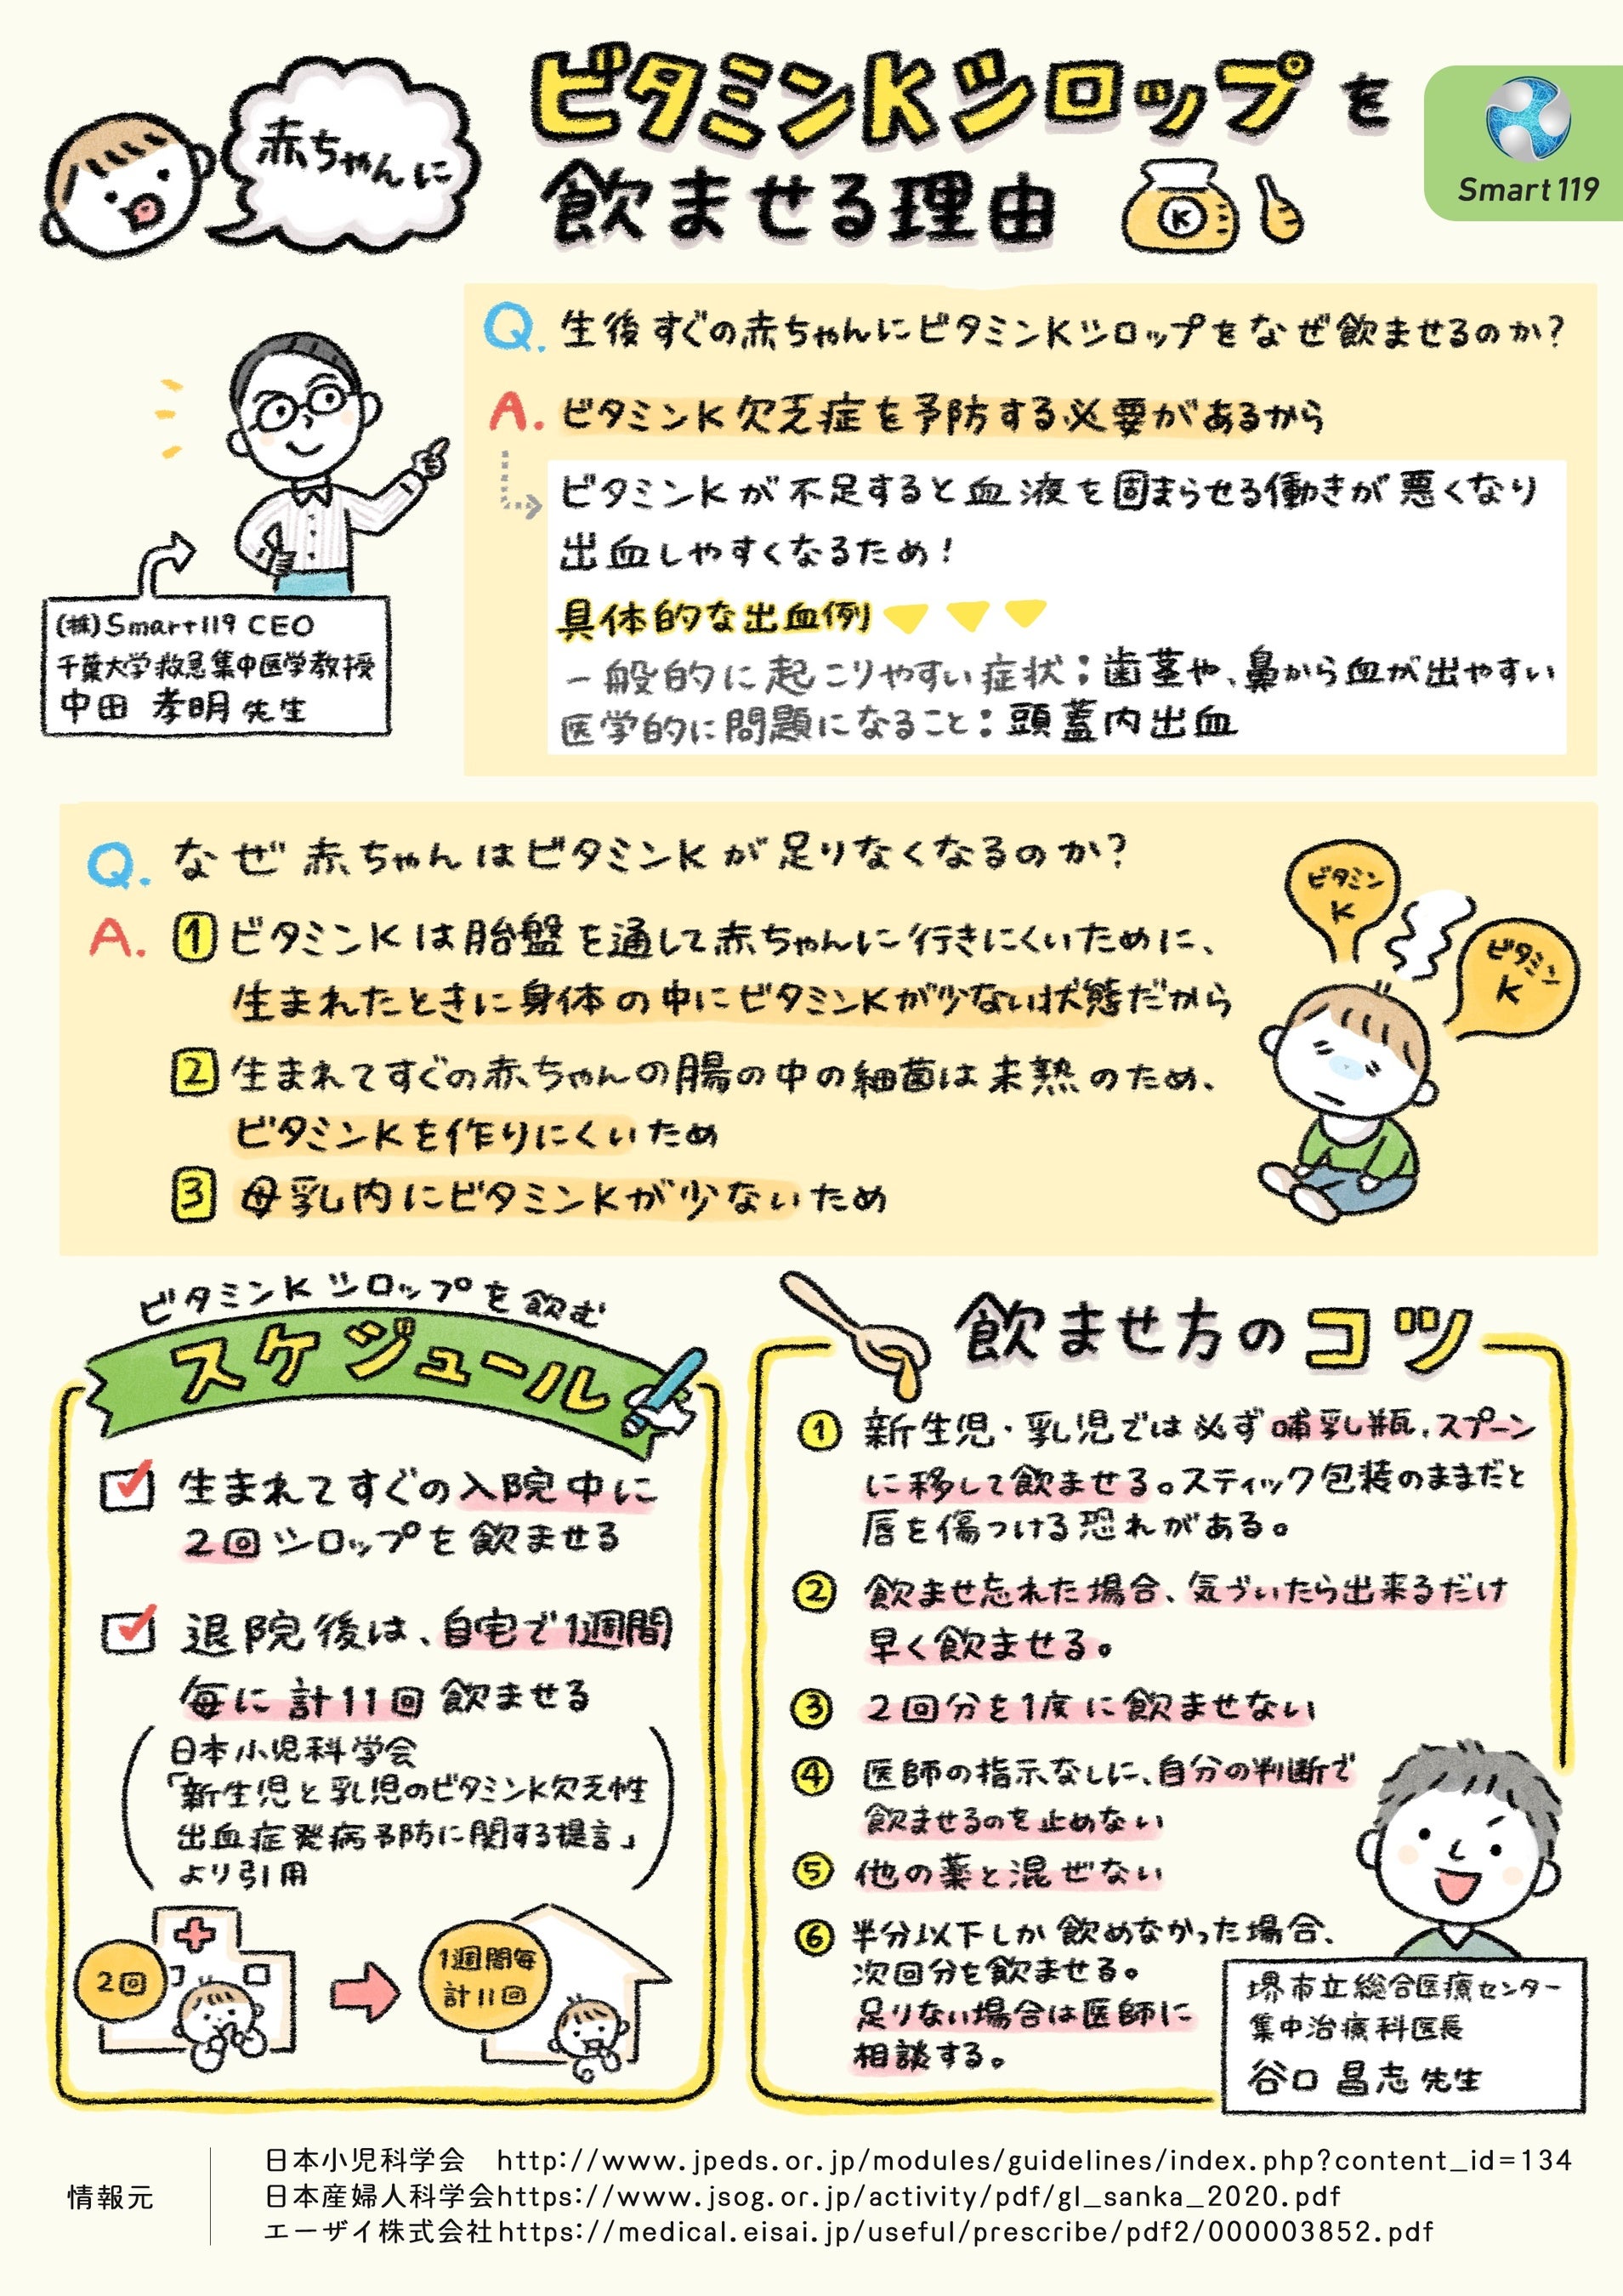 赤ちゃんに
ビタミンKシロップを
飲ませる理由
K
Smart119
Q. 生後すぐの赤ちゃんにビタミンKシロップをなぜ飲ませるのか?
A. ビタミンK欠乏症を予防する必要があるから
ビタミンKが不足すると血液を固まらせる働きが悪くなり
出血しやすくなるため!
具体的な出血例
一般的に起こりやすい症状:歯茎や、鼻から血が出やすい
医学的に問題になること:頭蓋内出血
(株)Smart119 CEO
千葉大学救急集中医学教授
中田 孝明 先生
Q. なぜ赤ちゃんはビタミンKが足りなくなるのか?
A. 1 ビタミンKは胎盤を通して赤ちゃんに行きにくいために、
生まれたときに身体の中にビタミンKが少ない状態だから
2 生まれてすぐの赤ちゃんの腸の中の細菌は未熟のため、
ビタミンKを作りにくいため
3 母乳内にビタミンKが少ないため
ビタミン
K
ビタミン
K
ビタミンKシロップを飲む
スケジュール
生まれてすぐの入院中に
2回シロップを飲ませる
退院後は、自宅で1週間
毎に計11回飲ませる
日本小児科学会
「新生児と乳児のビタミンK欠乏性
出血症発病予防に関する提言」
より引用
2回
1週間毎
計11回
飲ませ方のコツ
① 新生児・乳児では必ず哺乳瓶、スプーン
に移して飲ませる。スティック包装のままだと
唇を傷つける恐れがある。
② 飲ませ忘れた場合、気づいたら出来るだけ
早く飲ませる。
③ 2回分を1度に飲ませない
④ 医師の指示なしに、自分の判断で
飲ませるのを止めない
⑤ 他の薬と混ぜない
⑥ 半分以下しか飲めなかった場合、
次回分を飲ませる。
足りない場合は医師に
相談する。
堺市立総合医療センター
集中治療科医長
谷口 昌志 先生
情報元
日本小児科学会 http://www.jpeds.or.jp/modules/guidelines/index.php?content_id=134
日本産婦人科学会https://www.jsog.or.jp/activity/pdf/gl_sanka_2020.pdf
エーザイ株式会社https://medical.eisai.jp/useful/prescribe/pdf2/000003852.pdf